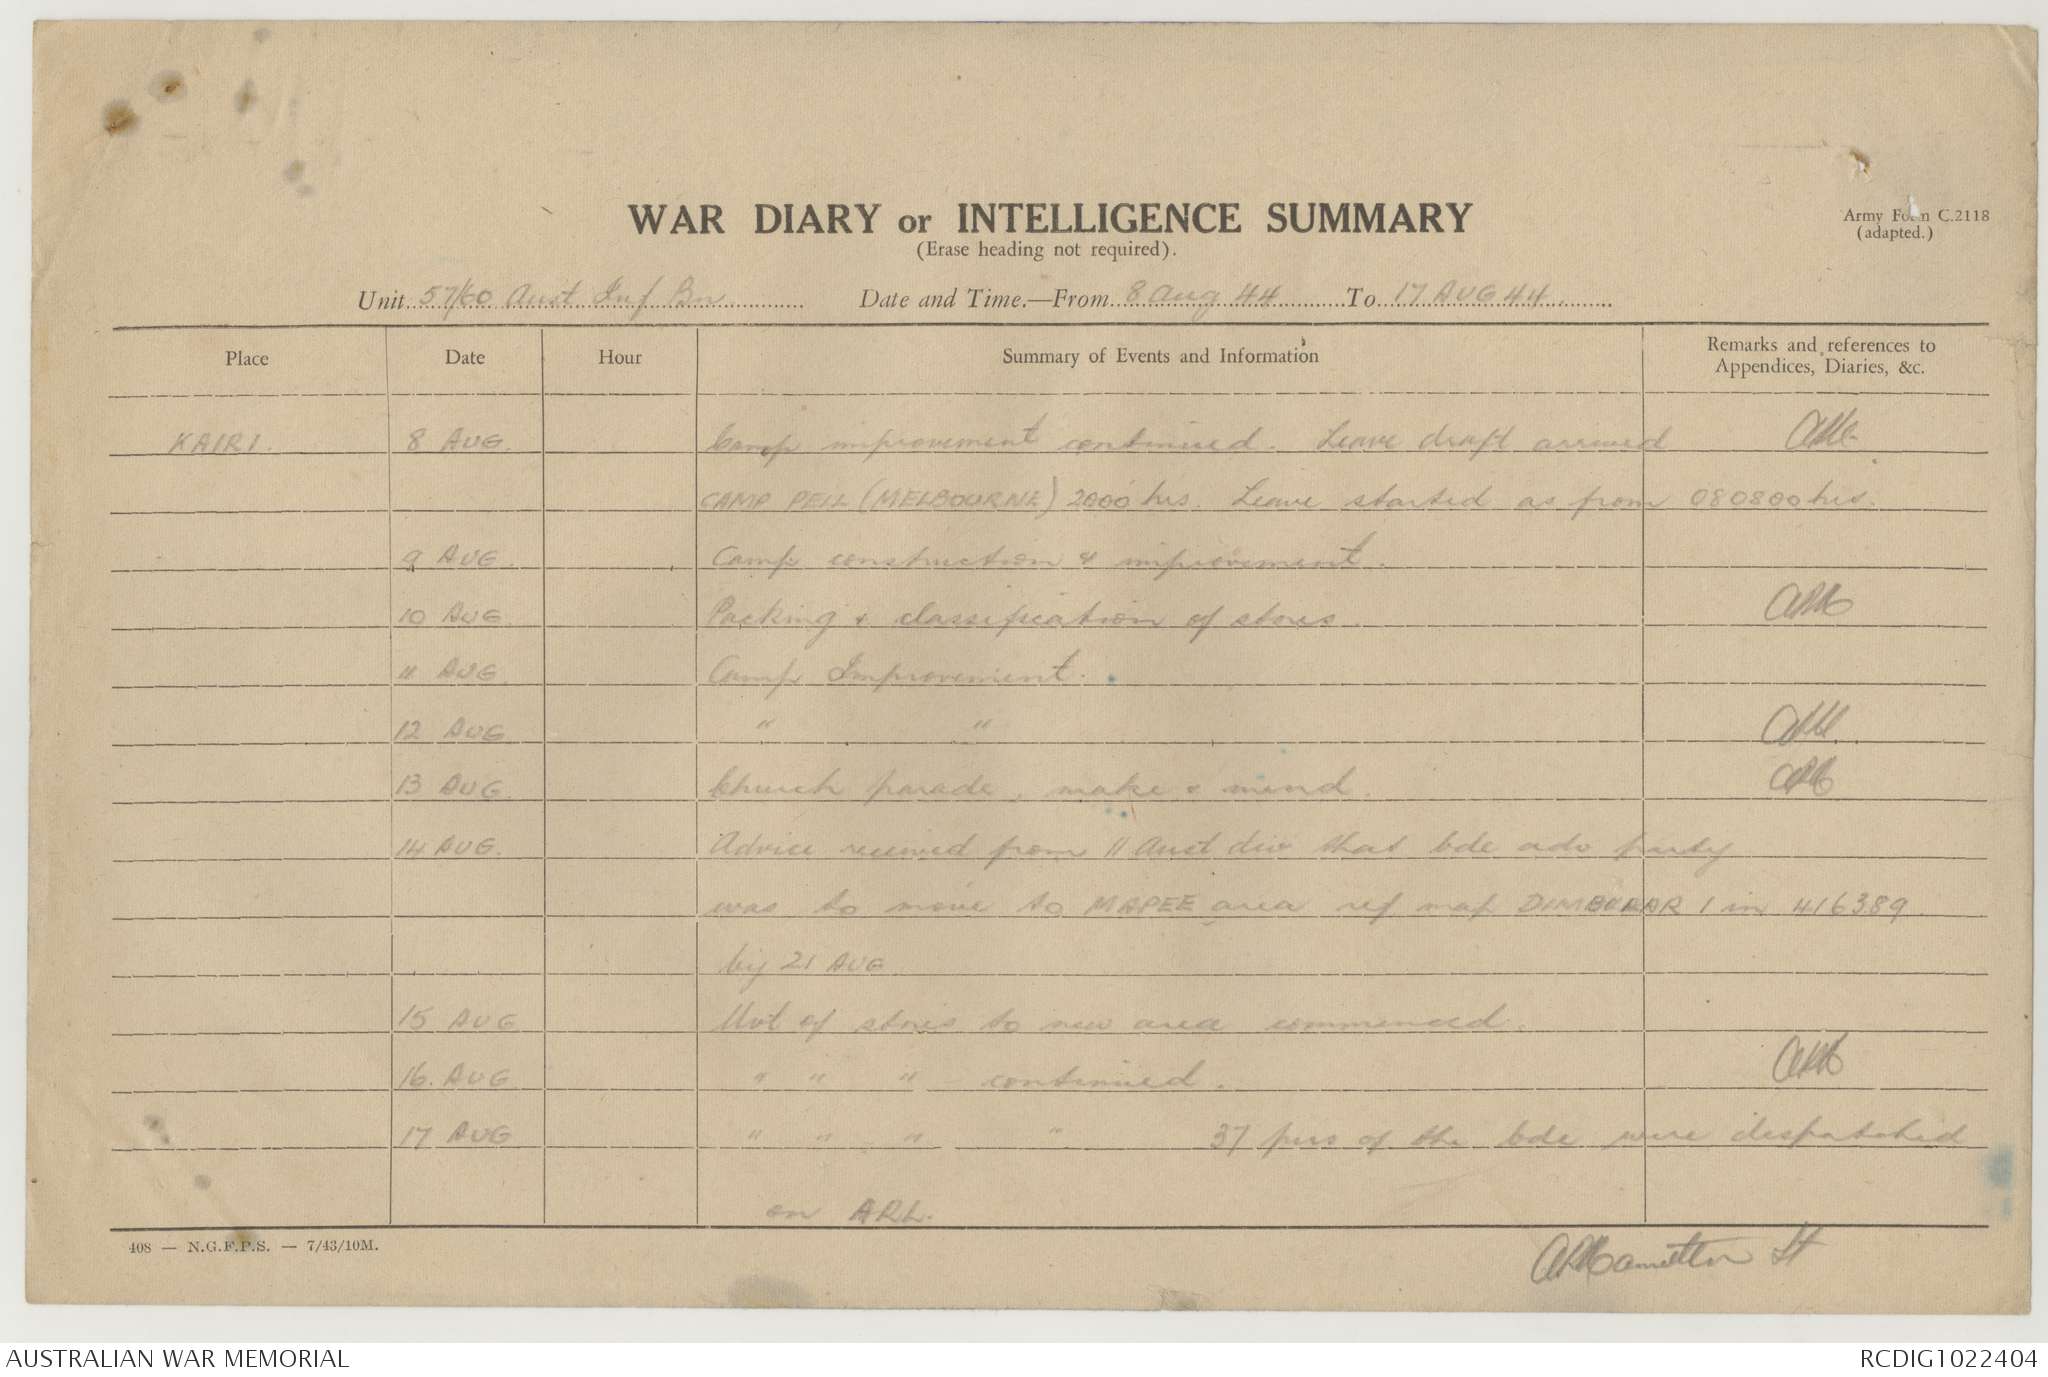 WAR DIARY or INTELLIGENCE SUMMARY
(Erase heading not required).
Army Form C.2118
(adapted.)
Unit 57/60 Aust Inf Bn Date and Time.—From 8 Aug 44 To 17 AUG 44
Place Date Hour Summary of Events and Information Remarks and references to
Appendices, Diaries, &c.
KAIRI. 8 AUG. Camp improvement continued. Leave draft arrived
CAMP PELL (MELBOURNE) 2000 hrs. Leave started as from 080800 hrs.
9 AUG. Camp construction & improvement.
10 AUG. Packing & classification of stores. APH
11 AUG. Camp Improvement.
12 AUG " " APH
13 AUG. Church parade, make & mend. APH
14 AUG. Advice received from 11 Aust div that bde adv party
was to move to MAPEE area ref map 1 in 416389
by 21 AUG
15 AUG Mvt of stores to new area commenced.
16. AUG " " " continued. APH
17 AUG " " " " 37 pers of the bde were despatched
on ARL.
408 — N.G.F.P.S. — 7/43/10M.
APHamilton Lt
AUSTRALIAN WAR MEMORIAL
RCDIG1022404